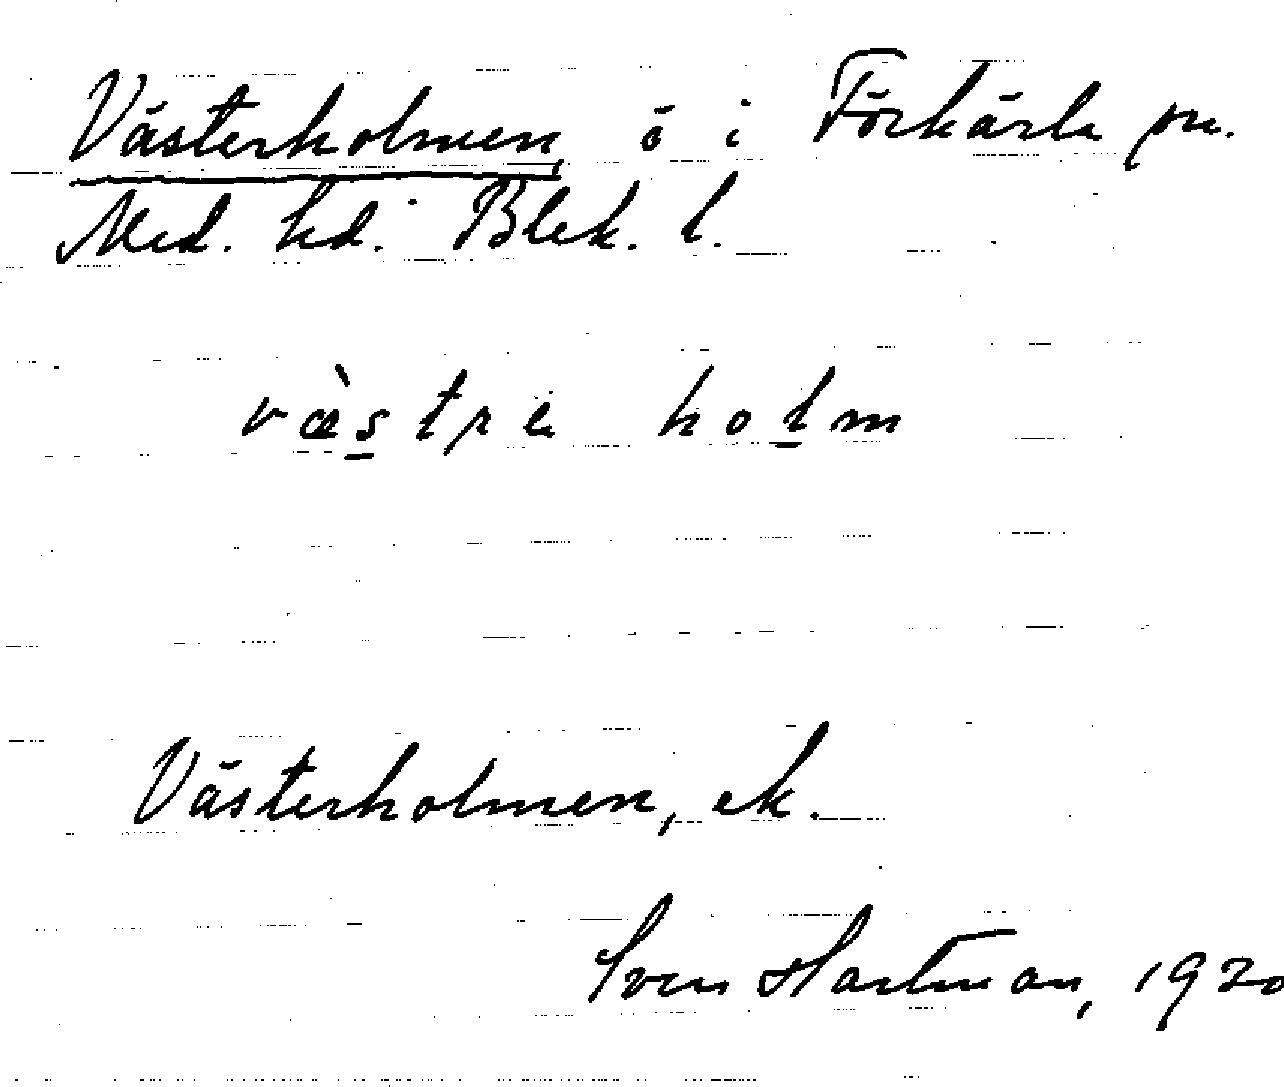 Västerholmen ö i Förkärla sn.
Med. hd. Blek. l.
væ̀s̲trɐ hol̲m
Västerholmen, ek.
Sven Hartman, 1920